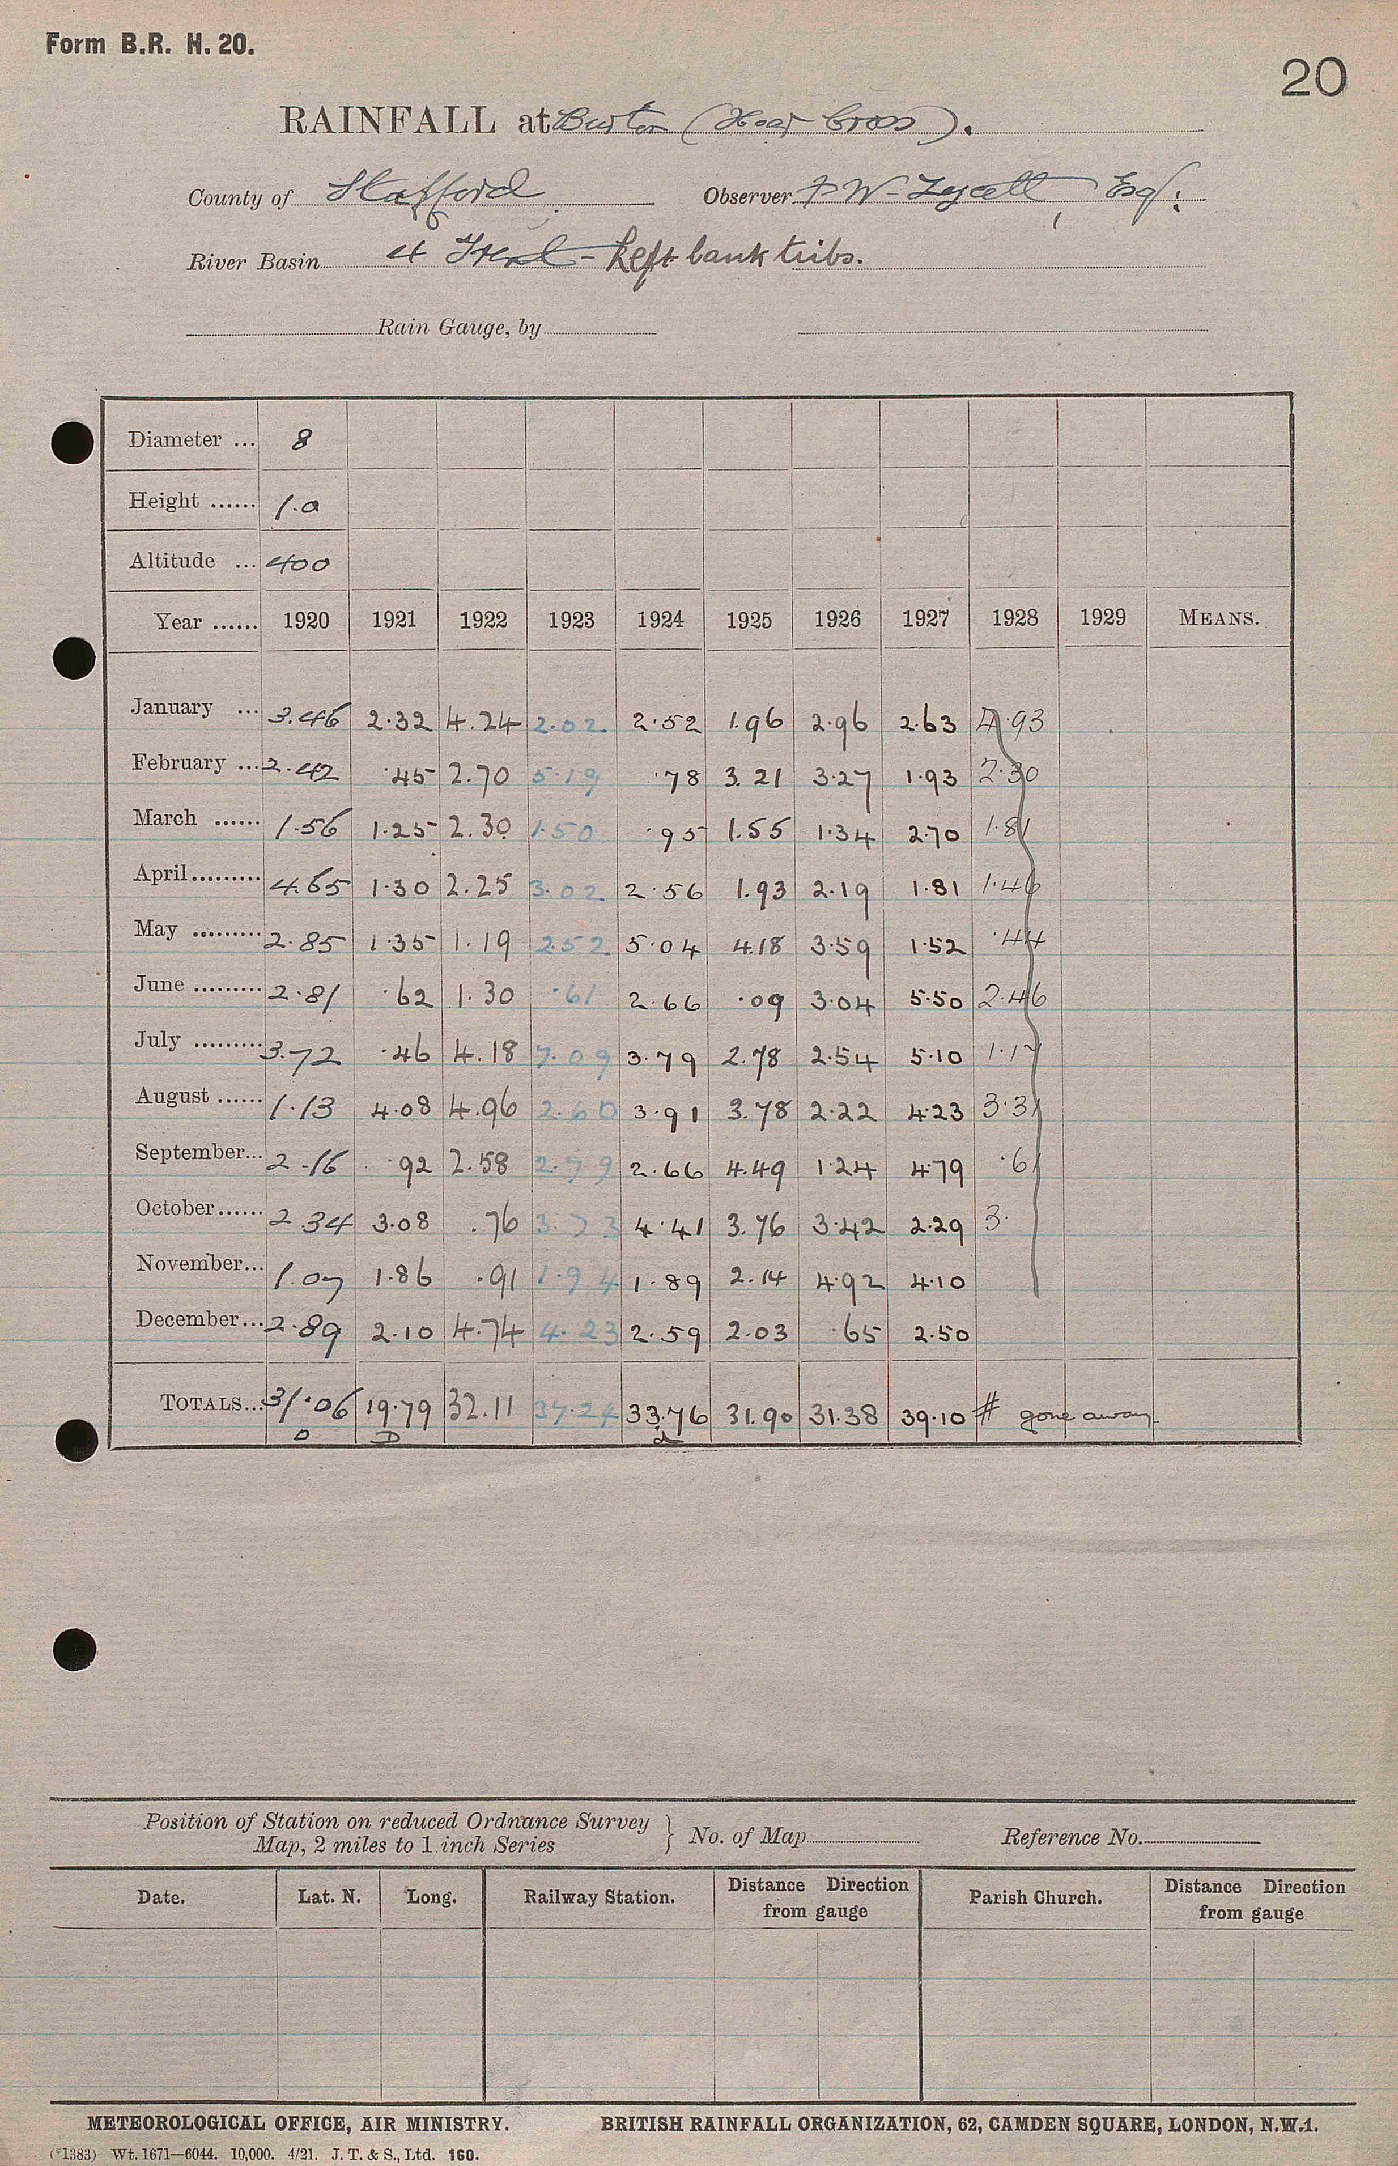 Form B.R. H. 20.
20
RAINFALL at Burton (Hoar Cross).
County of Stafford Observer P W Lycett, Esq:
River Basin 4 Trent - Left bank tribs.
Rain Gauge, by
Diameter ... 8
Height ...... 1.0
Altitude ... 400
Year ...... 1920 1921 1922 1923 1924 1925 1926 1927 1928 1929 MEANS.
January ... 3.46 2.32 4.24 2.02 2.52 1.96 2.96 2.63 4.93
February ... 2.42 .45 2.70 5.19 .78 3.21 3.27 1.93 2.30
March ...... 1.56 1.25 2.30 1.50 .95 1.55 1.34 2.70 1.81
April ......... 4.65 1.30 2.25 3.02 2.56 1.93 2.19 1.81 1.46
May ......... 2.85 1.35 1.19 2.52 5.04 4.18 3.59 1.52 .44
June ......... 2.81 .62 1.30 .61 2.66 .09 3.04 5.50 2.46
July ......... 3.72 .46 4.18 7.09 3.79 2.78 2.54 5.10 1.17
August ...... 1.13 4.08 4.96 2.60 3.91 3.78 2.22 4.23 3.31
September... 2.16 .92 2.58 2.79 2.66 4.49 1.24 4.79 .61
October...... 2.34 3.08 .76 3.73 4.41 3.76 3.42 2.29 3.
November... 1.07 1.86 .91 1.94 1.89 2.14 4.92 4.10
December... 2.89 2.10 4.74 4.23 2.59 2.03 .65 2.50
TOTALS... 31.06 19.79 32.11 37.24 33.76 31.90 31.38 39.10 # gone away
D D
Position of Station on reduced Ordnance Survey
Map, 2 miles to 1 inch Series } No. of Map Reference No.
Date. Lat. N. Long. Railway Station. Distance Direction from gauge Parish Church. Distance Direction from gauge
METEOROLOGICAL OFFICE, AIR MINISTRY. BRITISH RAINFALL ORGANIZATION, 62, CAMDEN SQUARE, LONDON, N.W.1.
(*1383) Wt. 1671—6044. 10,000. 4/21. J. T. & S., Ltd. 160.